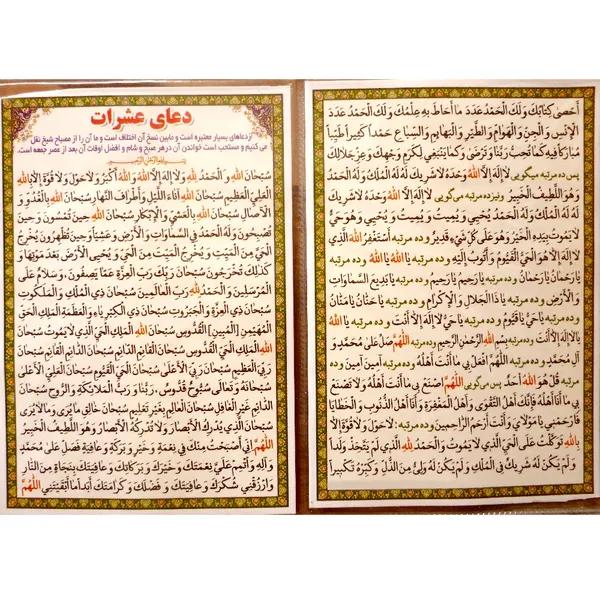 دعای عشرات
ازدعاهای بسیار معتبره است و مابین نسخ آن اختلاف است و ما آن را از مصباح شیخ نقل
می کنیم و مستحب است خواندن آن درهر صبح و شام و افضل اوقات آن بعد از عصر جمعه است.
بسم الله الرحمن الرحیم
سُبْحَانَ اللهِ وَ الْحَمْدُ لِلَّهِ وَ لَا إِلَهَ إِلَّا اللهُ وَ اللهُ أَكْبَرُ وَ لَا حَوْلَ وَ لَا قُوَّةَ إِلَّا بِاللهِ
الْعَلِيِّ الْعَظِيمِ سُبْحَانَ اللهِ آنَاءَ اللَّيْلِ وَ أَطْرَافَ النَّهَارِ سُبْحَانَ اللهِ بِالْغُدُوِّ وَ
الْآصَالِ سُبْحَانَ اللهِ بِالْعَشِيِّ وَ الْإِبْكَارِ سُبْحَانَ اللهِ حِينَ تُمْسُونَ وَ حِينَ
تُصْبِحُونَ وَ لَهُ الْحَمْدُ فِي السَّمَاوَاتِ وَ الْأَرْضِ وَ عَشِيّاً وَ حِينَ تُظْهِرُونَ يُخْرِجُ
الْحَيَّ مِنَ الْمَيِّتِ وَ يُخْرِجُ الْمَيِّتَ مِنَ الْحَيِّ وَ يُحْيِي الْأَرْضَ بَعْدَ مَوْتِهَا وَ
كَذَلِكَ تُخْرَجُونَ سُبْحَانَ رَبِّكَ رَبِّ الْعِزَّةِ عَمَّا يَصِفُونَ، وَ سَلَامٌ عَلَى
الْمُرْسَلِينَ وَ الْحَمْدُ لِلَّهِ رَبِّ الْعَالَمِينَ سُبْحَانَ ذِي الْمُلْكِ وَ الْمَلَكُوتِ
سُبْحَانَ ذِي الْعِزَّةِ وَ الْجَبَرُوتِ سُبْحَانَ ذِي الْكِبْرِيَاءِ وَ الْعَظَمَةِ الْمَلِكِ الْحَقِّ
الْمُهَيْمِنِ [الْمُبِينِ] الْقُدُّوسِ سُبْحَانَ اللهِ الْمَلِكِ الْحَيِّ الَّذِي لَا يَمُوتُ سُبْحَانَ
اللهِ الْمَلِكِ الْحَيِّ الْقُدُّوسِ سُبْحَانَ الْقَائِمِ الدَّائِمِ سُبْحَانَ الدَّائِمِ الْقَائِمِ سُبْحَانَ
رَبِّيَ الْعَظِيمِ سُبْحَانَ رَبِّيَ الْأَعْلَى سُبْحَانَ الْحَيِّ الْقَيُّومِ سُبْحَانَ الْعَلِيِّ الْأَعْلَى
سُبْحَانَهُ وَ تَعَالَى سُبُّوحٌ قُدُّوسٌ، رَبُّنَا وَ رَبُّ الْمَلَائِكَةِ وَ الرُّوحِ سُبْحَانَ
الدَّائِمِ غَيْرِ الْغَافِلِ سُبْحَانَ الْعَالِمِ بِغَيْرِ تَعْلِيمٍ سُبْحَانَ خَالِقِ مَا يُرَى وَ مَا لَا يُرَى
سُبْحَانَ الَّذِي يُدْرِكُ الْأَبْصَارَ وَ لَا تُدْرِكُهُ الْأَبْصَارُ وَ هُوَ اللَّطِيفُ الْخَبِيرُ
اللَّهُمَّ إِنِّي أَصْبَحْتُ مِنْكَ فِي نِعْمَةٍ وَ خَيْرٍ وَ بَرَكَةٍ وَ عَافِيَةٍ فَصَلِّ عَلَى مُحَمَّدٍ
وَ آلِهِ وَ أَتْمِمْ عَلَيَّ نِعْمَتَكَ وَ خَيْرَكَ وَ بَرَكَاتِكَ وَ عَافِيَتَكَ بِنَجَاةٍ مِنَ النَّارِ
وَ ارْزُقْنِي شُكْرَكَ وَ عَافِيَتَكَ وَ فَضْلَكَ وَ كَرَامَتَكَ أَبَداً مَا أَبْقَيْتَنِي اللَّهُمَّ
أَحْصَى كِتَابُكَ وَ لَكَ الْحَمْدُ عَدَدَ مَا أَحَاطَ بِهِ عِلْمُكَ وَ لَكَ الْحَمْدُ عَدَدَ
الْإِنْسِ وَ الْجِنِّ وَ الْهَوَامِّ وَ الطَّيْرِ وَ الْبَهَائِمِ وَ السِّبَاعِ حَمْداً كَثِيراً طَيِّباً
مُبَارَكاً فِيهِ كَمَا تُحِبُّ رَبَّنَا وَ تَرْضَى وَ كَمَا يَنْبَغِي لِكَرَمِ وَجْهِكَ وَ عِزِّ جَلَالِكَ
پس ده مرتبه میگویی لَا إِلَهَ إِلَّا اللهُ وَحْدَهُ لَا شَرِيكَ لَهُ لَهُ الْمُلْكُ وَ لَهُ الْحَمْدُ
وَ هُوَ اللَّطِيفُ الْخَبِيرُ ونیزده مرتبه می‌گویی لَا إِلَهَ إِلَّا اللهُ وَحْدَهُ لَا شَرِيكَ
لَهُ لَهُ الْمُلْكُ وَ لَهُ الْحَمْدُ يُحْيِي وَ يُمِيتُ وَ يُمِيتُ وَ يُحْيِي وَ هُوَ حَيٌّ
لَا يَمُوتُ بِيَدِهِ الْخَيْرُ وَ هُوَ عَلَى كُلِّ شَيْءٍ قَدِيرٌ و ده مرتبه أَسْتَغْفِرُ اللهَ الَّذِي
لَا إِلَهَ إِلَّا هُوَ الْحَيُّ الْقَيُّومُ وَ أَتُوبُ إِلَيْهِ وده مرتبه يَا اللهُ يَا اللهُ وده مرتبه
يَا رَحْمَانُ يَا رَحْمَانُ وده مرتبه يَا رَحِيمُ يَا رَحِيمُ وده مرتبه يَا بَدِيعَ السَّمَاوَاتِ
وَ الْأَرْضِ وده مرتبه يَا ذَا الْجَلَالِ وَ الْإِكْرَامِ وده مرتبه يَا حَنَّانُ يَا مَنَّانُ
وده مرتبه يَا حَيُّ يَا قَيُّومُ وده مرتبه يَا حَيُّ لَا إِلَهَ إِلَّا أَنْتَ وده مرتبه يَا اللهُ
يَا لَا إِلَهَ إِلَّا أَنْتَ وده مرتبه بِسْمِ اللهِ الرَّحْمَنِ الرَّحِيمِ وده مرتبه اللَّهُمَّ صَلِّ عَلَى مُحَمَّدٍ وَ
آلِ مُحَمَّدٍ وده مرتبه اللَّهُمَّ افْعَلْ بِي مَا أَنْتَ أَهْلُهُ وده مرتبه آمِينَ آمِينَ وده
مرتبه قُلْ هُوَ اللهُ أَحَدٌ پس می‌گویی اللَّهُمَّ اصْنَعْ بِي مَا أَنْتَ أَهْلُهُ وَ لَا تَصْنَعْ
بِي مَا أَنَا أَهْلُهُ فَإِنَّكَ أَهْلُ التَّقْوَى وَ أَهْلُ الْمَغْفِرَةِ وَ أَنَا أَهْلُ الذُّنُوبِ وَ الْخَطَايَا
فَارْحَمْنِي يَا مَوْلَايَ وَ أَنْتَ أَرْحَمُ الرَّاحِمِينَ وده مرتبه: لَا حَوْلَ وَ لَا قُوَّةَ إِلَّا
بِاللهِ تَوَكَّلْتُ عَلَى الْحَيِّ الَّذِي لَا يَمُوتُ وَ الْحَمْدُ لِلَّهِ الَّذِي لَمْ يَتَّخِذْ وَلَداً
وَ لَمْ يَكُنْ لَهُ شَرِيكٌ فِي الْمُلْكِ وَ لَمْ يَكُنْ لَهُ وَلِيٌّ مِنَ الذُّلِّ وَ كَبِّرْهُ تَكْبِيراً